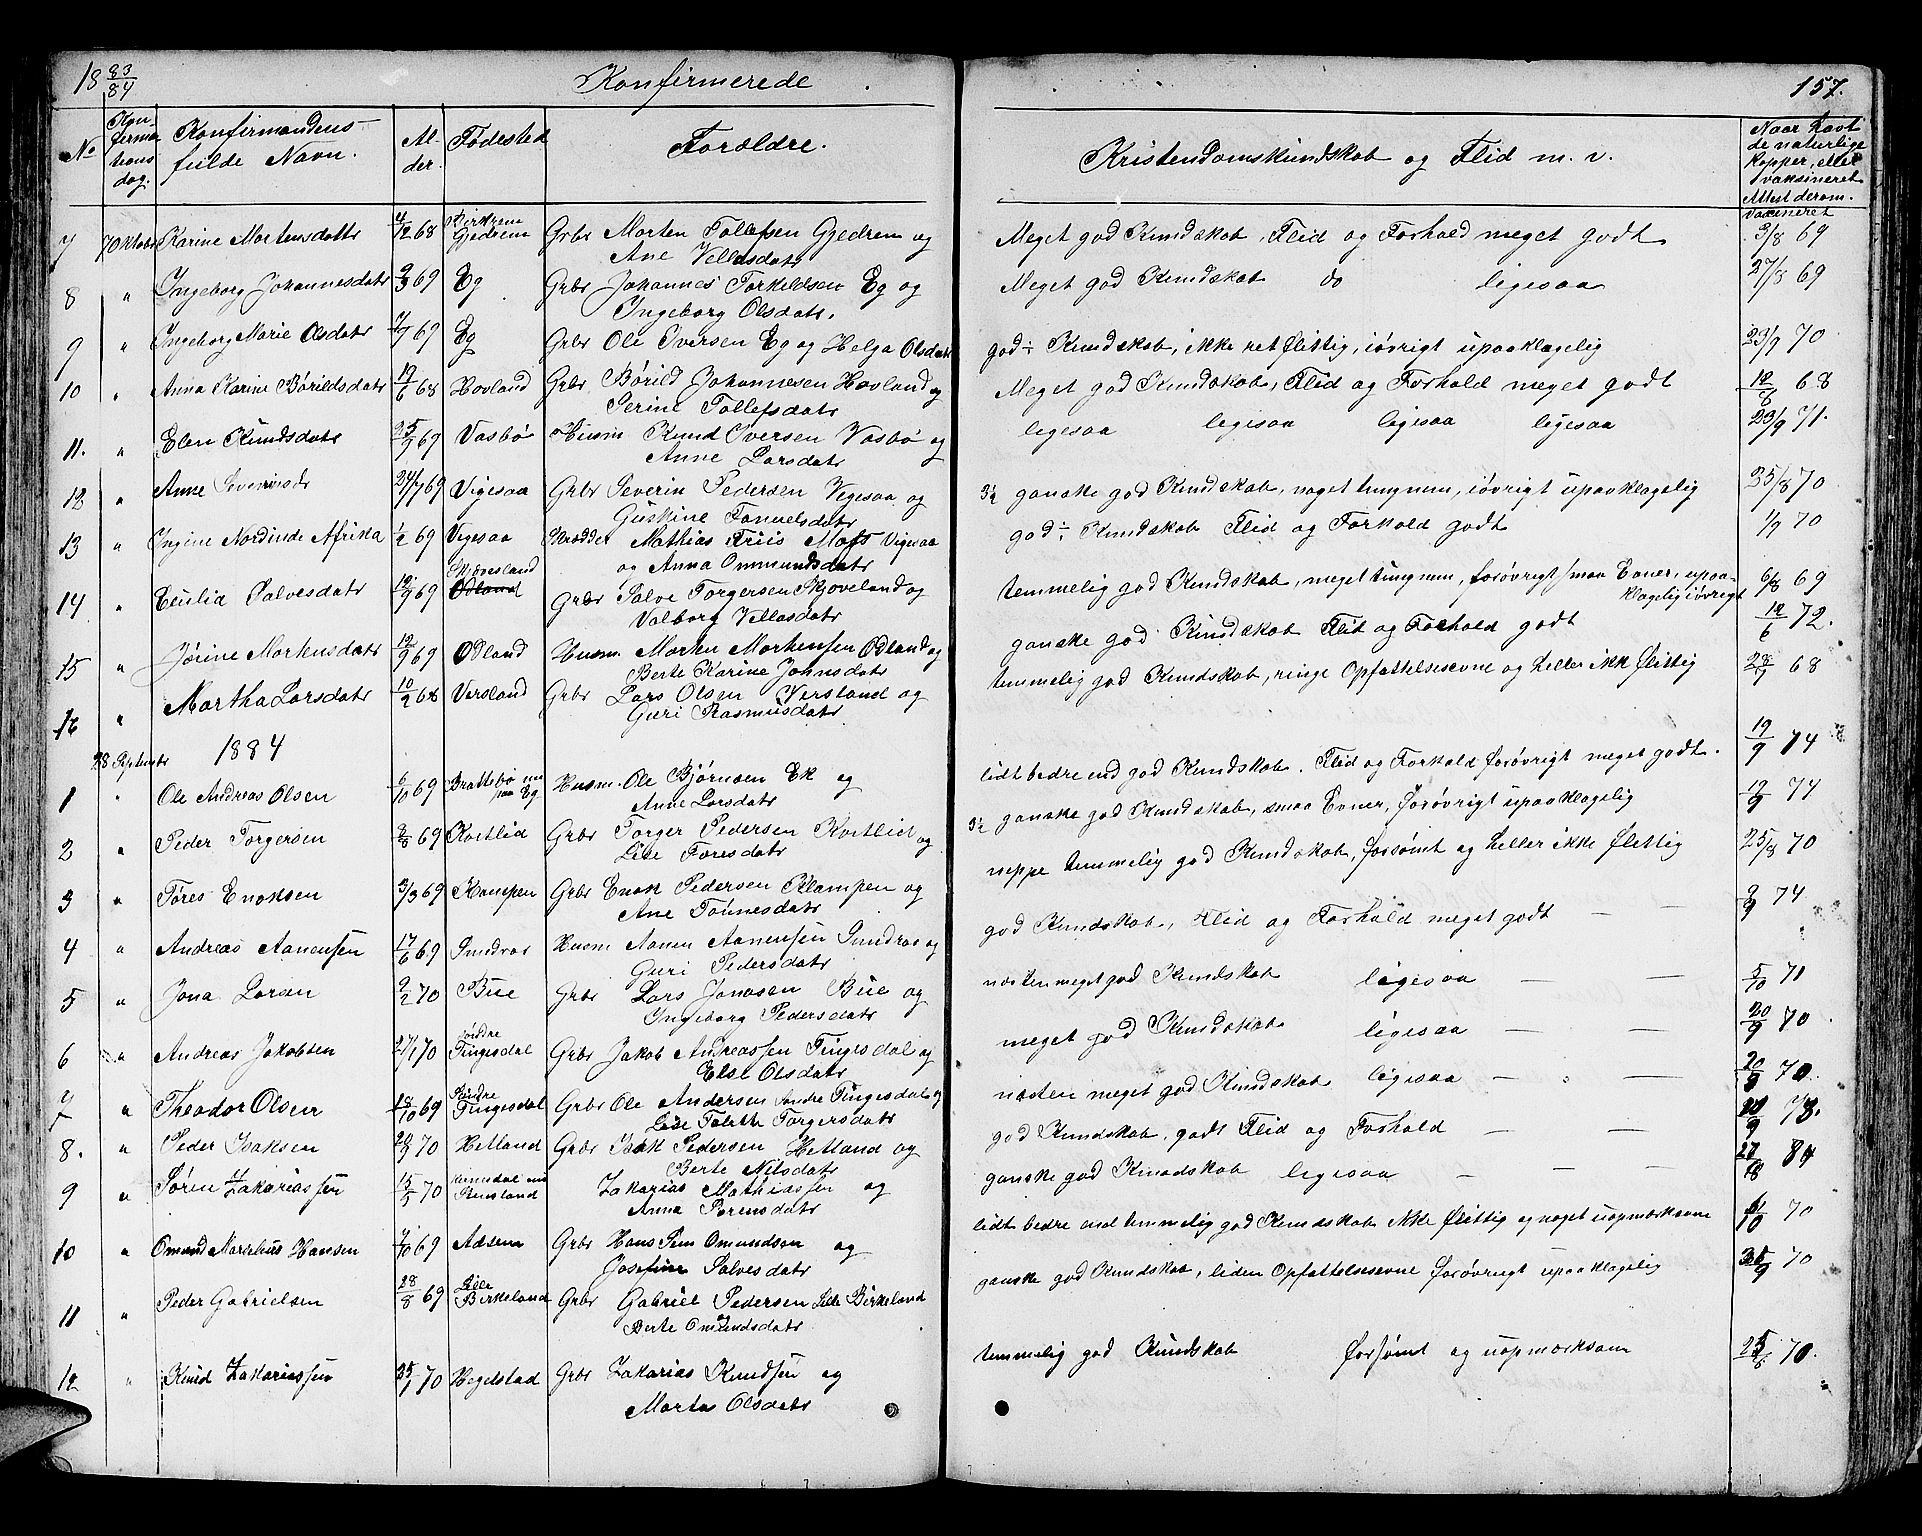 18 83/84 Konfirmerede 157.
No Konfirmationsdag. Konfirmandens fulde Navn. Alder. Fødested Forældre. Kristendomskundskab og Flid m. v. Naar havt de naturlige Kopper, eller vaksineret Attest derom.
vaccineret
7 7 Oktober Karine Mortensdatter 4/12 68 Birkrem Gjedrem Grbr Morten Tollefsen Gjedrem og Meget god Kundskab, Flid og Forhold meget godt 3/8 69
Ane Vellesdatr
8 " Ingeborg Johannesdatr 9/3 69 Eg Grbr Johannes Torkeldsen Eg og Meget god Kundskab do ligesaa 27/8 69
Ingeborg Olsdatr.
9 " Ingeborg Marie Olsdatr 7/7 69 Eg Grbr Ole Iversen Eg og Helga Olsdatr god ÷ Kundskab, ikke ret flittig, iøvrigt upaaklagelig 23/9 70
10 " Anna Karine Børildsdatr 19/6 68 Hovland Grbr Børild Johannesen Hovland og Meget god Kundskab, Flid og Forhold meget godt 12/8 68
Serine Tollefsdatr
11. " Elen Knudsdatr 25/9 69 Vasbø Husm Knud Iversen Vasbø og ligesaa ligesaa ligesaa ligesaa 23/9 71.
Anne Larsdatr
12 " Anne Severinsdr 24/7 69 Vigesaa Grbr Severin Pedersen Vigesaa og 3½ ganske god Kundskab, noget tungnem, iøvrigt upaaklagelig 25/8 70
Guskine Tonuelsdatr
13 " Ingine Nordinde Afrika 1/2 69 Vigesaa Skrædder Mathias Friis Mofs Vigesaa god ÷ Kundskab Flid og Forhold godt 1/9 70
og Anna Ommundsdatr
14 " Cecilia Salvesdatr 12/9 69 Skjæveland Odland Grbr Salve Torgersen Skjæveland og temmelig god Kundskab, meget tungnem, forøvrigt smaa Evner, upaaklagelig iøvrigt 6/8 69
Valborg Vellesdatr
15 " Jørine Markusdatr 12/9 69 Odland Husm. Markus Markussen Odland og ganske god Kundskab Flid og Forhold godt 12/6 72.
Berte Karine Johnsdatr
16 " Martha Larsdatr 10/2 68 Versland Grbr Lars Olsen Versland og temmelig god Kundskab, ringe Opfattelsesevne og heller ikke flittig 68
Guri Rasmusdatr
28 September 1884
1 " Ole Andreas Olsen 6/10 69 Brattebø nu paa Eg Husm. Ole Bjørnsen Ek og lidt bedre end god Kundskab. Flid og Forhold forøvrigt meget godt. 19/9 74
Anne Larsdatr
2 " Peder Torgersen 2/8 69 Kortlid Grbr Torger Pedersen Kortlid og 3½ ganske god Kundskab, smaa Evner, forøvrigt upaaklagelig 19/9 74
Lise Toresdatr
3 " Tøres Enoksen 3/3 69 Kampen Grbr Enok Pedersen Klampen og neppe temmelig god Kundskab, forsømt og heller ikke flittig 25/8 70
Ane Tønnesdatr
4 " Andreas Aanensen 17/6 69 Sundvar Husm Aanen Aanensen Sundvar og god Kundskab, Flid og Forhold meget godt — — 9/9 74
Guri Pedersdatr
5 " Jona Larsen 9/2 70 Bue Grbr Lars Jonasen Bue og næsten meget god Kundskab ligesaa — — 5/10 71
Ingeborg Pedersdatr
6 " Andreas Jakobsen 27/1 70 Søndre Tingesdal Grbr Jakob Andreassen Tingesdal og meget god Kundskab ligesaa — — 20/9 70
Else Olsdatr
7 " Theodor Olsen 18/10 69 Søndre Tingesdal Grbr Ole Andersen Søndre Tingesdal og næsten meget god Kundskab ligesaa — — 20/9 70
Lise Tolette Torgersdatr
8. " Peder Isaksen 70 Hetland Grbr Isak Pedersen Hetland og god Kundskab, godt Flid og Forhold — — 73.
Berte Nilsdatr
9 " Søren Zakariassen 15/5 70 Zakarias Mathiassen og ganske god Kundskab ligesaa — — — 84
Anna Sørensdatr
10 " Omund Markelius Hansen 7/10 69 Adsem Grbr Hans Sem Omundsen og lidt bedre end temmelig god Kundskab ikke flittig og noget uopmærksom 70
Josefine Salvesdatr
11 " Peder Gabrielsen 28/8 69 Lille Birkeland Grbr Gabriel Pedersen Lille Birkeland ganske god Kundskab, liden Opfattelsesevne forøvrigt upaaklagelig 70
Berte Omundsdatr
12 " Knud Zakariassen 25/1 70 Hegelstad Grbr Zakarias Knudsen og temmelig god Kundskab forsømt og uopmærksom 25/8 70.
Marta Olsdatr